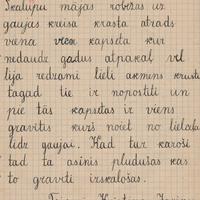 Skaļupu mājas robežās uz
gaujas kreisā krasta atrads
vena veca kapsēta kur
nedaudz gadus atpakaļ vēl
bija redzami lieli akmens krusti
tagad tie ir nopostīti un
pie tās kapsētas ir viens
gravītis kurš noiet no lielceļa
līdz gaujai. Kad tur karoši
tad ta asinis pludušas kas
to gravīti izskalošas.